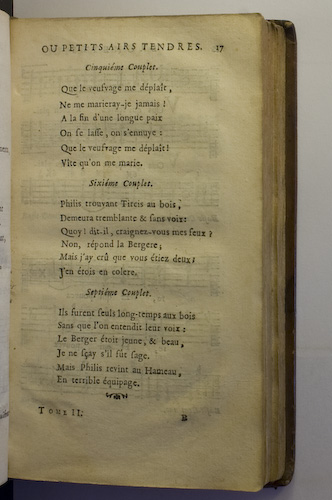 OU PETITS AIRS TENDRES. 17
Cinquiéme Couplet.
Que le veufvage me déplaît,
Ne me marieray-je jamais !
A la fin d'une longue paix
On se lasse, on s'ennuye :
Que le veufvage me déplaît !
Vîte qu'on me marie.
Sixiéme Couplet.
Philis trouvant Tircis au bois,
Demeura tremblante & sans voix:
Quoy! dit-il, craignez-vous mes feux ?
Non, répond la Bergere;
Mais j'ay crû que vous étiez deux:
J'en étois en colere.
Septiéme Couplet.
Ils furent seuls long-temps aux bois
Sans que l'on entendit leur voix :
Le Berger étoit jeune, & beau,
Je ne sçay s'il fût sage.
Mais Philis revint au Hameau,
En terrible équipage.
TOME II. B